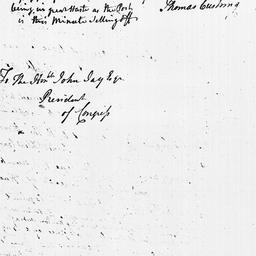 being in great Haste as the Post
is this Minute setting off
Thomas Cushing
To The Honble John Jay Esqr
President
of Congress